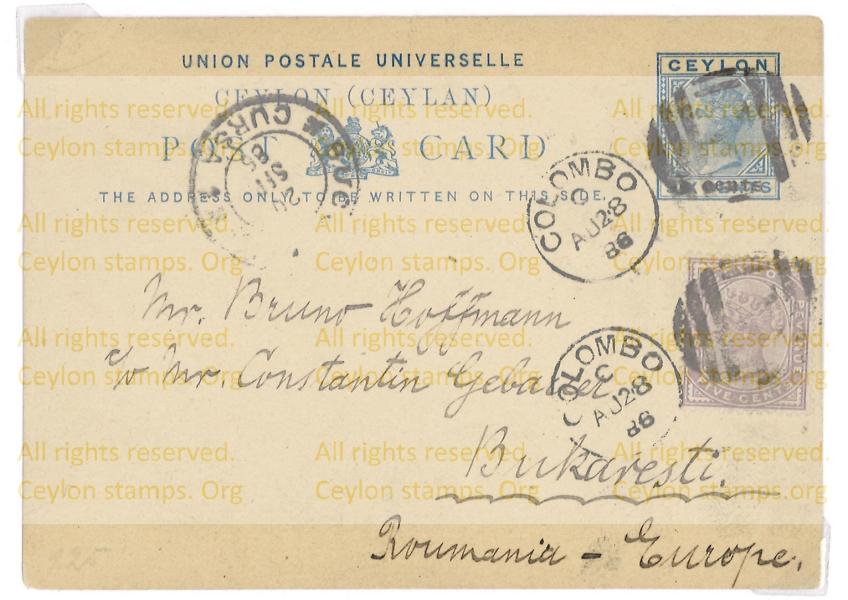 UNION POSTALE UNIVERSELLE
CEYLON (CEYLAN)
POST CARD
THE ADDRESS ONLY TO BE WRITTEN ON THIS SIDE.
CEYLON
COLOMBO
C
AU 28
86
Mr. Bruno Hoffmann
c/o Mr. Constantin Gebauer
COLOMBO
C
AU 28
86
FIVE CENTS
Bukaresti.
Roumania – Europe.
All rights reserved. All rights reserved. All rights reserved.
Ceylon stamps. Org Ceylon stamps. Org Ceylon stamps. Org
All rights reserved. All rights reserved. All rights reserved.
Ceylon stamps. Org Ceylon stamps. Org Ceylon stamps. Org
All rights reserved. All rights reserved. All rights reserved.
Ceylon stamps. Org Ceylon stamps. Org Ceylon stamps. Org
All rights reserved. All rights reserved. All rights reserved.
Ceylon stamps. Org Ceylon stamps. Org Ceylon stamps. Org